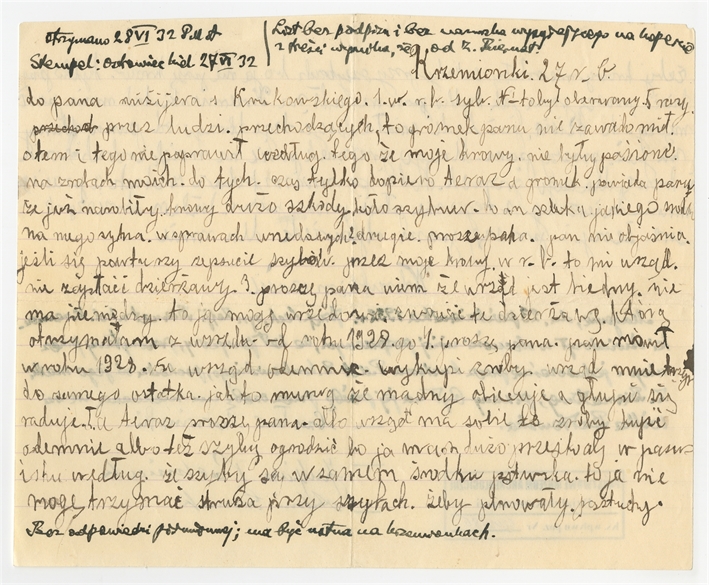 otrzymano 28 VI 32
Stempel: Ostrowiec Kiel 27 VI 32
List bez podpisu i bez nazwiska wysyłającego na kopercie
z treści wynika, że od
Krzemionki. 27 r. b
do pana inżijera s Krukowskiego. 1. w. r. b. szyb. to był oberwany 5 razy
przez ludzi. przechodzących. to gromek panu nie zawiadomił
o tem i tego nie poprawił według. tego że moje krowy. nie były pasione.
na zrobach moich. do tych. czas tylko dopiero teraz a gromek. powiada panu
że już narobiły. krowy dużo szkody koło szybuw. to on szuka jakiego
na mego syna. w sprawach urzedowych 2. drugie. prosze pana. pan mie objaśnia.
jeśli się powturzy zepsucie szybów. przez moje krowy. w r. b. to mi urząd.
nie zapłaci dzierżawy 3. proszę pana wiem że urząd jest biedny. nie
ma pieniędzy. to ja mogę urzędowi zwrócić te dzierżawę. którą
otrzymałam z urzędu od roku 1928 go 4. proszę pana. pan mówił
w roku 1928. że urząd odemnie. wykupi zroby urząd mnie
do samego ostatka. jak to muwią że mądry obiecuje a głupi się
raduje. Ale teraz proszę pana. albo urząd ma sobie te zroby kupić
odemnie albo też szyby ogrodzić bo ja mam dużo przeskody w pasw
isku według. że szyby są w samem środku pastwiska. to ja nie
mogę trzymać struża przy szybach. żeby pilnowały. pastuchy.
Bez odpowiedzi piśmiennej; ma być ustna na Krzemionkach.